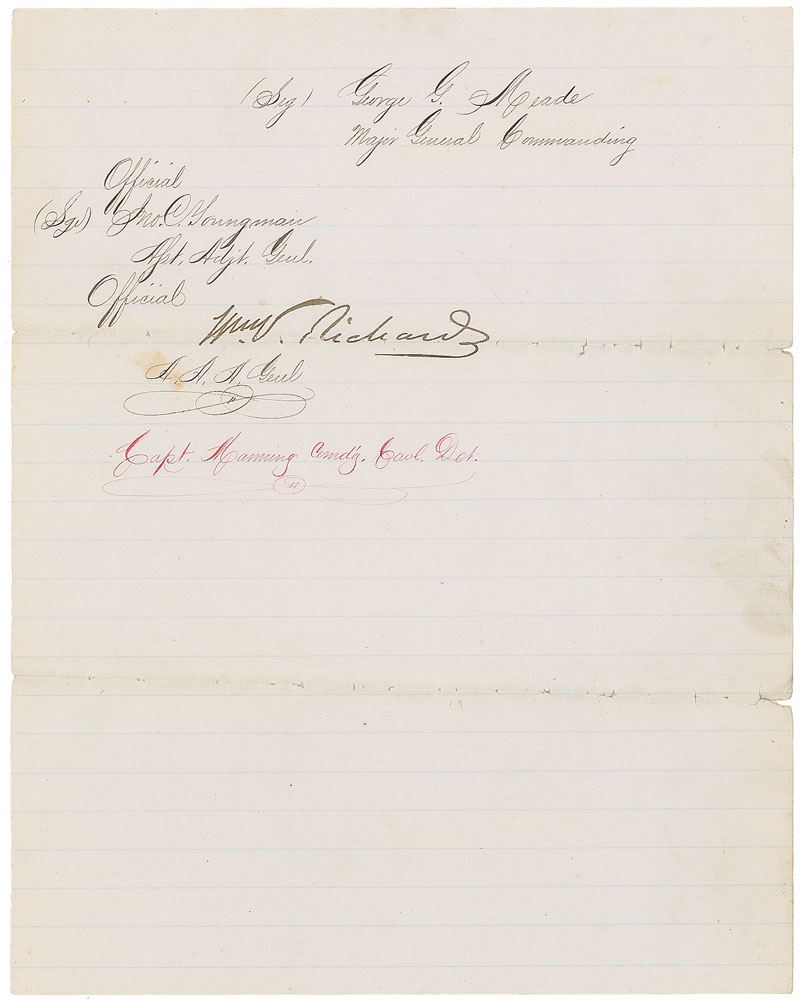 (Sig) George G. Meade
Major General Commanding
Official
(Sgd) Jno. C. Youngman
Asst. Adjt. Genl.
Official
Wm V. Richards
A. A. A. Genl
"
Capt. Manning Cmdg. Cavl. Det.
"